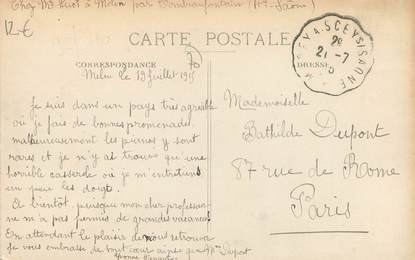 Chez Mr Huot à Melin par Combeaufontaine (Hte Saône)
12€
CARTE POSTALE
CORRESPONDANCE
ADRESSE
70
Melin le 19 Juillet 1915
Je suis dans un pays très agréable
où je fais de bonnes promenades
malheureusement les pianos y sont
rares et je n'y ai trouvé qu'une
horrible casserole où je m'entretiens
un peu les doigts.
A bientôt puisque mon cher professeur
ne m'a pas permis de grandes vacances
En attendant le plaisir de vous retrouver
Je vous embrasse de tout cœur ainsi que Mme Dupont
Mademoiselle
Mathilde Dupont
87 rue de Rome
Paris
SCEY-S-SAONE
21-7